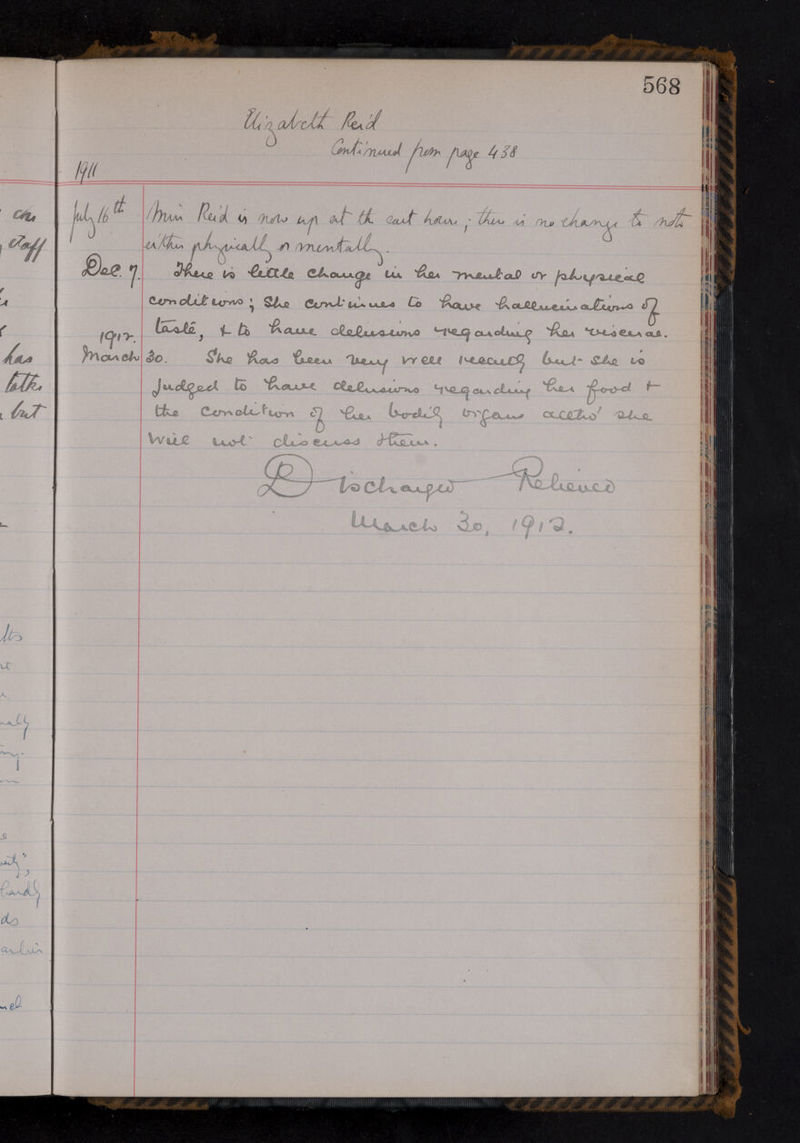 568
Elizabeth Reid
Continued from page 438
1911
July 16th Miss Reid is now up at the east house; there is no change to note
either physically or mentally.
Dec. 7. There is little change in her mental or physical
conditions; She continues to have hallucinations of
taste, & to have delusions regarding her viscerae.
1912.
March 30. She has been very well recently but she is
Judged to have delusions regarding her food &
the condition of her bodily organs altho' she
will not discuss them.
Discharged Relieved
March 30, 1912.
staff
has
but
hardly